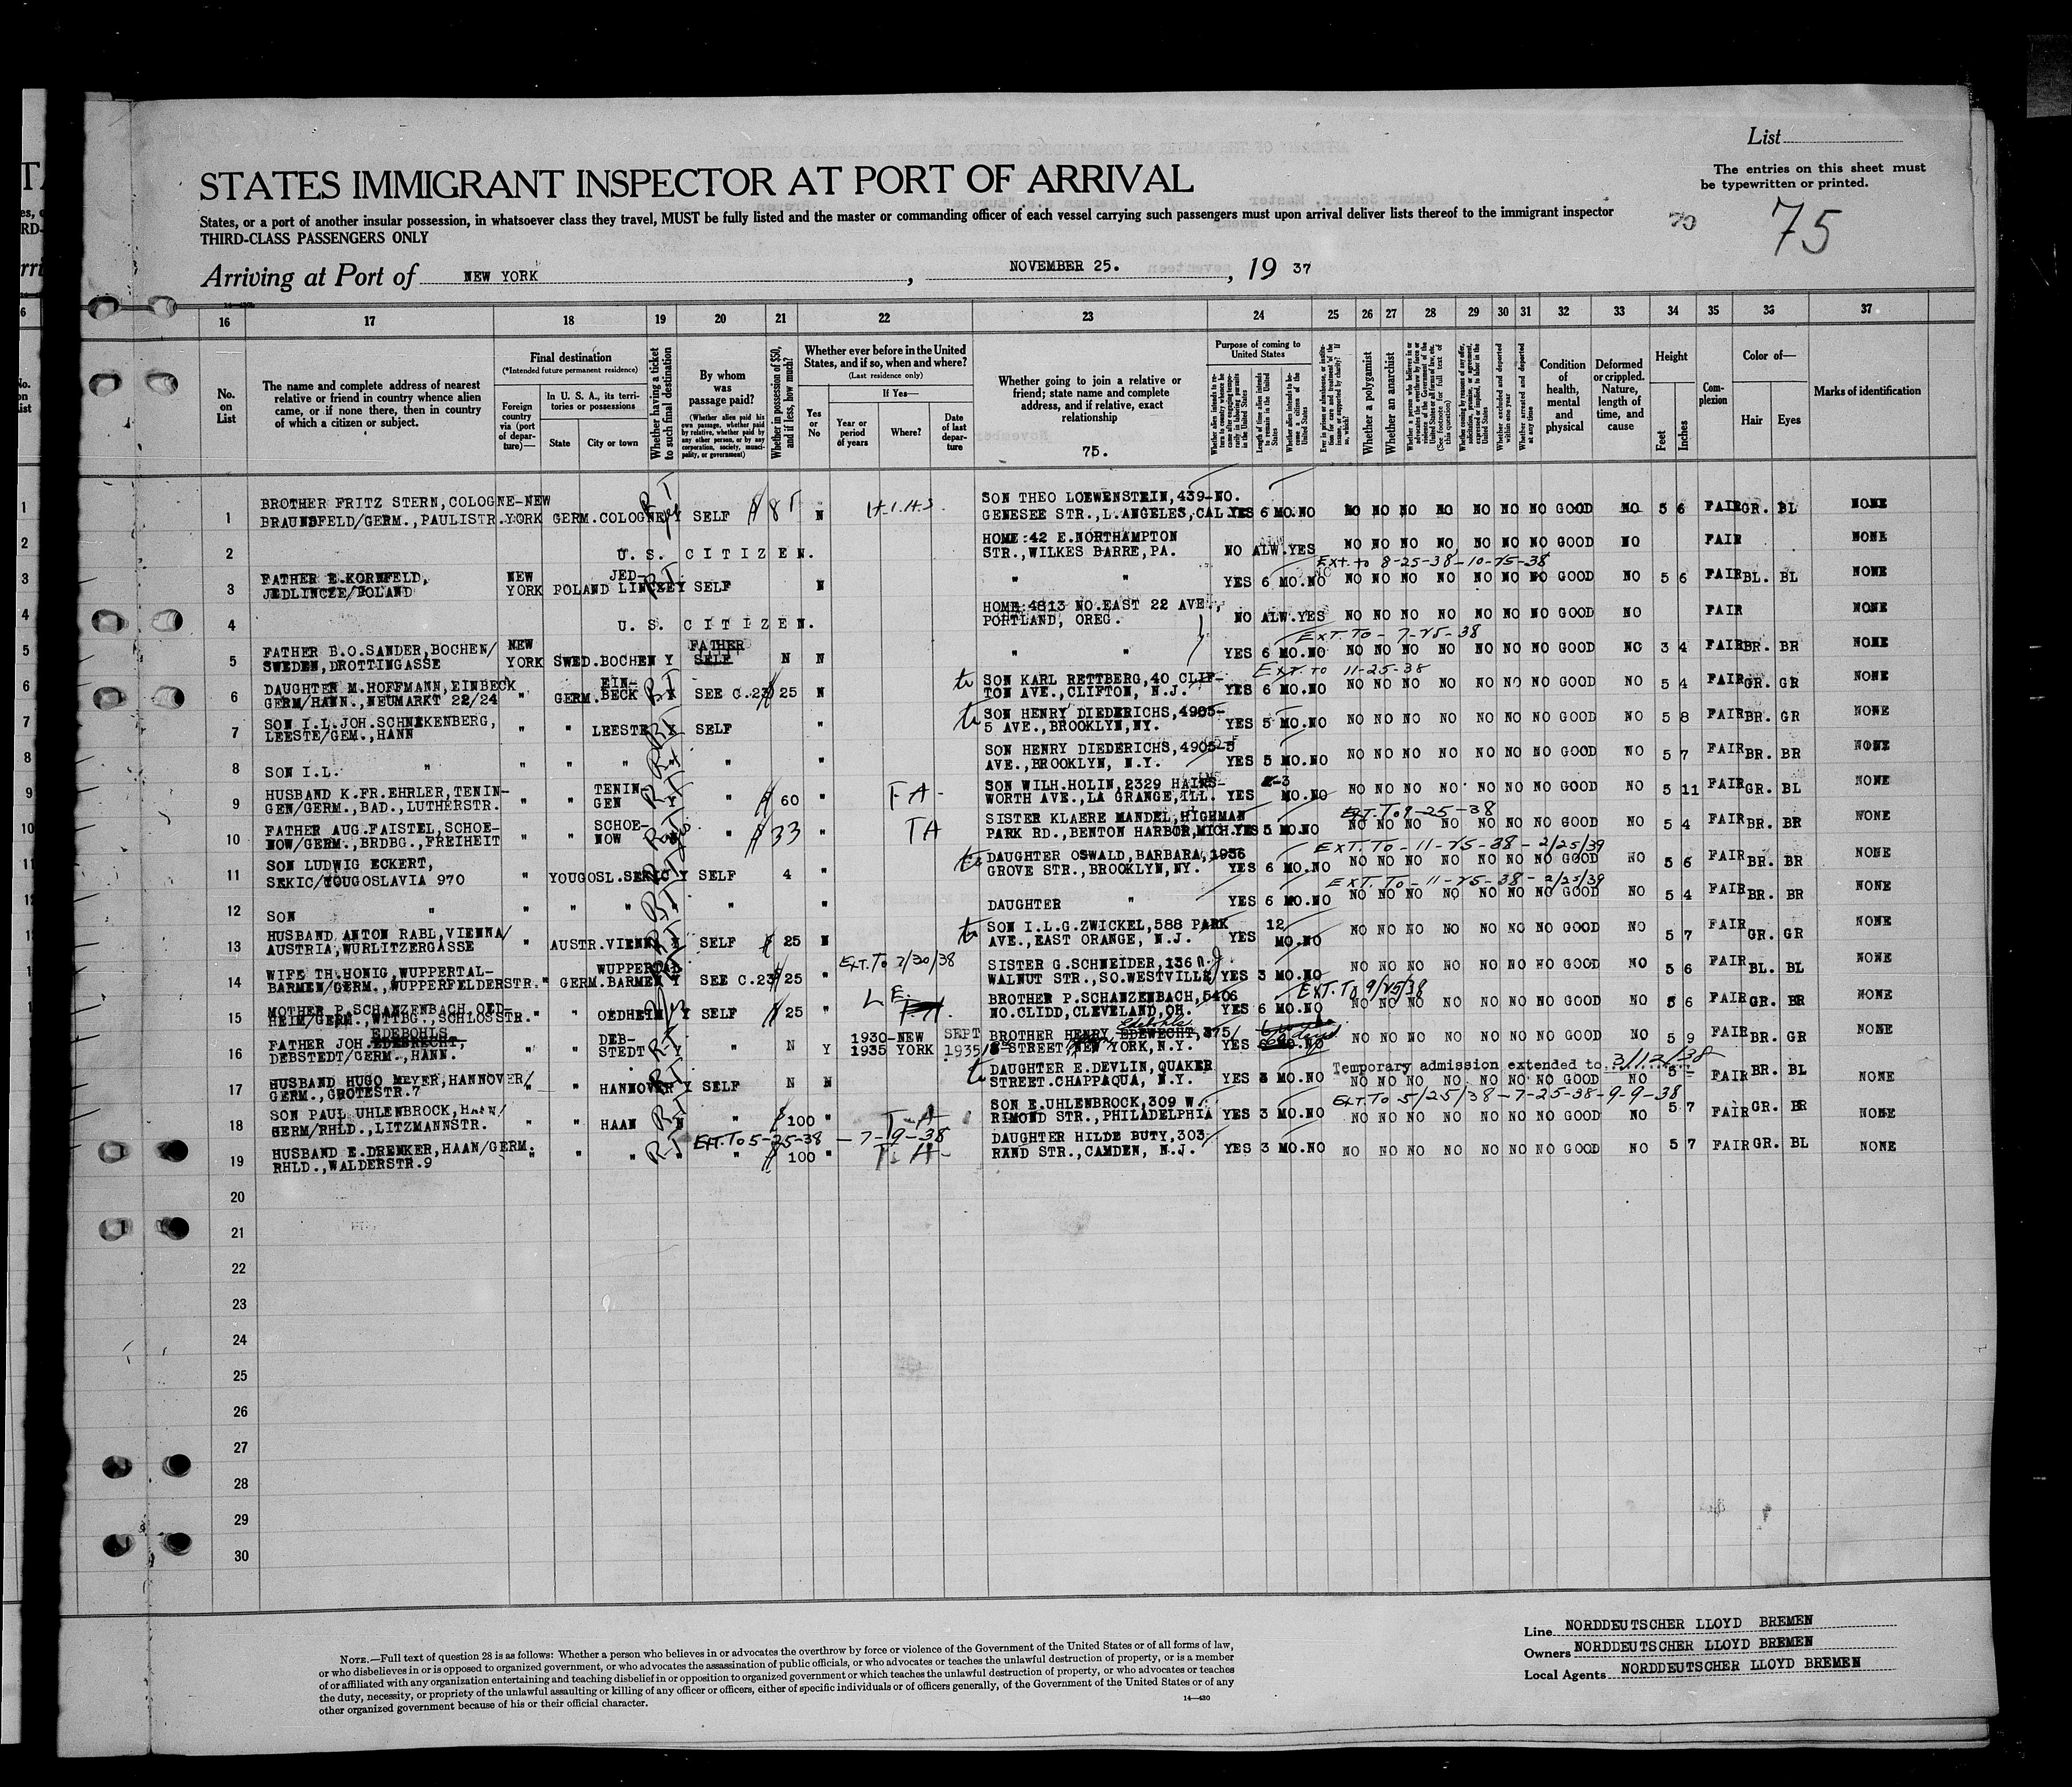 List
The entries on this sheet must
be typewritten or printed.
STATES IMMIGRANT INSPECTOR AT PORT OF ARRIVAL
States, or a port of another insular possession, in whatsoever class they travel, MUST be fully listed and the master or commanding officer of each vessel carrying such passengers must upon arrival deliver lists thereof to the immigrant inspector
THIRD-CLASS PASSENGERS ONLY
70
75
Arriving at Port of NEW YORK, NOVEMBER 25., 19 37
16 17 18 19 20 21 22 23 24 25 26 27 28 29 30 31 32 33 34 35 36 37
No. on List
The name and complete address of nearest
relative or friend in country whence alien
came, or if none there, then in country
of which a citizen or subject.
Final destination
(*Intended future permanent residence)
Foreign country via (port of departure)—
In U. S. A., its territories or possessions
State
City or town
Whether having a ticket to such final destination
By whom was passage paid?
(Whether alien paid his own passage, whether paid by relative, whether paid by any other person, or by any corporation, society, municipality, or government)
Whether in possession of $50, and if less, how much?
Whether ever before in the United States, and if so, when and where?
(Last residence only)
Yes or No
If Yes—
Year or period of years
Where?
Date of last departure
Whether going to join a relative or
friend; state name and complete
address, and if relative, exact
relationship
75.
Purpose of coming to United States
Length of time alien intends to remain in the United States
Whether a polygamist
Whether an anarchist
Whether arrested and deported at any time
Condition of health, mental and physical
Deformed or crippled. Nature, length of time, and cause
Height
Feet
Inches
Complexion
Color of—
Hair
Eyes
Marks of identification
1 BROTHER FRITZ STERN, COLOGNE- NEW
BRAUNSFELD/GERM., PAULISTR. YORK GERM. COLOGNE Y SELF N SON THEO LOEWENSTEIN, 439-NO.
GENESEE STR., L.ANGELES, CAL. YES 6 MO. NO NO NO NO NO NO NO NO GOOD NO 5 6 FAIR GR. BL NONE
2 U. S. CITIZEN. HOME: 42 E. NORTHAMPTON
STR., WILKES BARRE, PA. NO ALW. YES NO NO NO NO NO NO NO GOOD NO FAIR NONE
Ext. to 8-25-38-10-25-38
3 FATHER E. KORNFELD, NEW JED-
JEDLINCZE/POLAND YORK POLAND Y SELF N " " YES 6 MO. NO NO NO NO NO NO NO NO GOOD NO 5 6 FAIR BL. BL NONE
4 U. S. CITIZEN. HOME: 4813 NO. EAST 22 AVE.,
PORTLAND, OREG. NO ALW. YES NO NO NO NO NO NO NO GOOD NO FAIR NONE
EXT. TO - 7-25-38
5 FATHER B.O. SANDER, BOCHEN/ NEW FATHER
SWEDEN, DROTTINGASSE YORK SWED. BOCHEN Y SELF N N " " YES 6 MO. NO NO NO NO NO NO NO NO GOOD NO 3 4 FAIR BR. BR NONE
EXT. TO 11-25-38
6 DAUGHTER M. HOFFMANN, EINBECK EIN-
GERM/HANN., NEUMARKT 22/24 " GERM. BECK SEE C. 23 25 N SON KARL RETTBERG, 40 CLIF-
TON AVE., CLIFTON, N.J. YES 6 MO. NO NO NO NO NO NO NO NO GOOD NO 5 4 FAIR GR. GR NONE
7 SON I.L. JOH. SCHNAKENBERG,
LEESTE/GEM., HANN " " LEESTE SELF " SON HENRY DIEDERICHS, 4905-
5 AVE., BROOKLYN, NY. YES 5 MO. NO NO NO NO NO NO NO NO GOOD NO 5 8 FAIR BR. GR NONE
8 SON I.L. " " " " " " SON HENRY DIEDERICHS, 4905-5
AVE., BROOKLYN, N.Y. YES 5 MO. NO NO NO NO NO NO NO NO GOOD NO 5 7 FAIR BR. BR NONE
9 HUSBAND K. FR. EHRLER, TENIN- TENIN-
GEN/GERM., BAD., LUTHERSTR. " " GEN " 60 " SON WILH. HOLIN, 2329 HAINS-
WORTH AVE., LA GRANGE, ILL. YES MO. NO NO NO NO NO NO NO NO GOOD NO 5 11 FAIR GR. BL NONE
EXT. TO 9-25-38
10 FATHER AUG. FAISTEL, SCHOE- SCHOE-
NOW/GERM., BRDBG., FREIHEIT " " NOW " 33 " TA SISTER KLAERE MANDEL, HIGHMAN
PARK RD., BENTON HARBOR, MICH. YES 5 MO. NO NO NO NO NO NO NO NO GOOD NO 5 4 FAIR BR. BR NONE
EXT. TO - 11-25-38 - 2/25/39
11 SON LUDWIG ECKERT,
SEKIC/YOUGOSLAVIA 970 " YOUGOSL. SEKIC Y SELF 4 " DAUGHTER OSWALD, BARBARA, 1936
GROVE STR., BROOKLYN, NY. YES 6 MO. NO NO NO NO NO NO NO NO GOOD NO 5 6 FAIR BR. BR NONE
EXT. TO - 11-25-38 - 2/25/39
12 SON " " " " " " DAUGHTER " YES 6 MO. NO NO NO NO NO NO NO NO GOOD NO 5 4 FAIR BR. BR NONE
13 HUSBAND ANTON RABL, VIENNA/
AUSTRIA, WURLITZERGASSE " AUSTR. VIENNA SELF 25 N SON I.L. G. ZWICKEL, 588 PARK 12
AVE., EAST ORANGE, N.J. YES MO. NO NO NO NO NO NO NO NO GOOD NO 5 7 FAIR GR. GR NONE
14 WIFE TH. HONIG, WUPPERTAL- WUPPERTAL-
BARMEN/GERM., WUPPERFELDERSTR. " GERM. BARMEN Y SEE C. 23 25 " SISTER G. SCHNEIDER, 136
WALNUT STR., SO. WESTVILLE YES 3 MO. NO NO NO NO NO NO NO NO GOOD NO 5 6 FAIR BL. BL NONE
EXT. TO 9/25/38
15 MOTHER P. SCHANZENBACH, OED-
HEIM/GERM., WTTBG., SCHLOSSTR. " " OEDHEIM Y SELF 25 " BROTHER P. SCHANZENBACH, 5406
NO. CLIDD, CLEVELAND, OH. YES 6 MO. NO NO NO NO NO NO NO NO GOOD NO 5 6 FAIR GR. BR NONE
EDEBOHLS
16 FATHER JOH. EDEBRECHT, DEB-
DEBSTEDT/GERM., HANN. " " STEDT Y " N Y 1930-NEW SEPT
1935 YORK 1935 BROTHER HENRY EDEWECHT, 375/
STREET NEW YORK, N.Y. YES NO NO NO NO NO NO NO GOOD NO 5 9 FAIR BR. GR NONE
Temporary admission extended to 3/12/38
17 HUSBAND HUGO MEYER, HANNOVER/
GERM., GROTESTR. 7 " " HANNOVER Y SELF N N DAUGHTER E. DEVLIN, QUAKER
STREET. CHAPPAQUA, N.Y. YES 3 MO. NO NO NO NO NO NO NO NO GOOD NO 5 FAIR BR. BL NONE
EXT. TO 5/25/38-7-25-38-9-9-38
18 SON PAUL UHLENBROCK, HAAN/
GERM/RHLD., LITZMANNSTR. " " HAAN " 100 " T-A SON E. UHLENBROCK, 309 W.
RIMOND STR., PHILADELPHIA YES 3 MO. NO NO NO NO NO NO NO NO GOOD NO 5 7 FAIR GR. BR NONE
EXT. TO 5-25-38 - 7-9-38
19 HUSBAND E. DRENKER, HAAN/GERM.
RHLD., WALDERSTR. 9 " " " " " 100 " T. A- DAUGHTER HILDE BUTY, 303
RAND STR., CAMDEN, N.J. YES 3 MO. NO NO NO NO NO NO NO NO GOOD NO 5 7 FAIR GR. BL NONE
20
21
22
23
24
25
26
27
28
29
30
Line NORDDEUTSCHER LLOYD BREMEN
Owners NORDDEUTSCHER LLOYD BREMEN
Local Agents NORDDEUTSCHER LLOYD BREMEN
NOTE.—Full text of question 28 is as follows: Whether a person who believes in or advocates the overthrow by force or violence of the Government of the United States or of all forms of law,
or who disbelieves in or is opposed to organized government, or who advocates the assassination of public officials, or who advocates or teaches the unlawful destruction of property, or is a member
of or affiliated with any organization entertaining and teaching disbelief in or opposition to organized government or which teaches the unlawful destruction of property, or who advocates or teaches
the duty, necessity, or propriety of the unlawful assaulting or killing of any officer or officers, either of specific individuals or of officers generally, of the Government of the United States or of any
other organized government because of his or their official character.
14—430